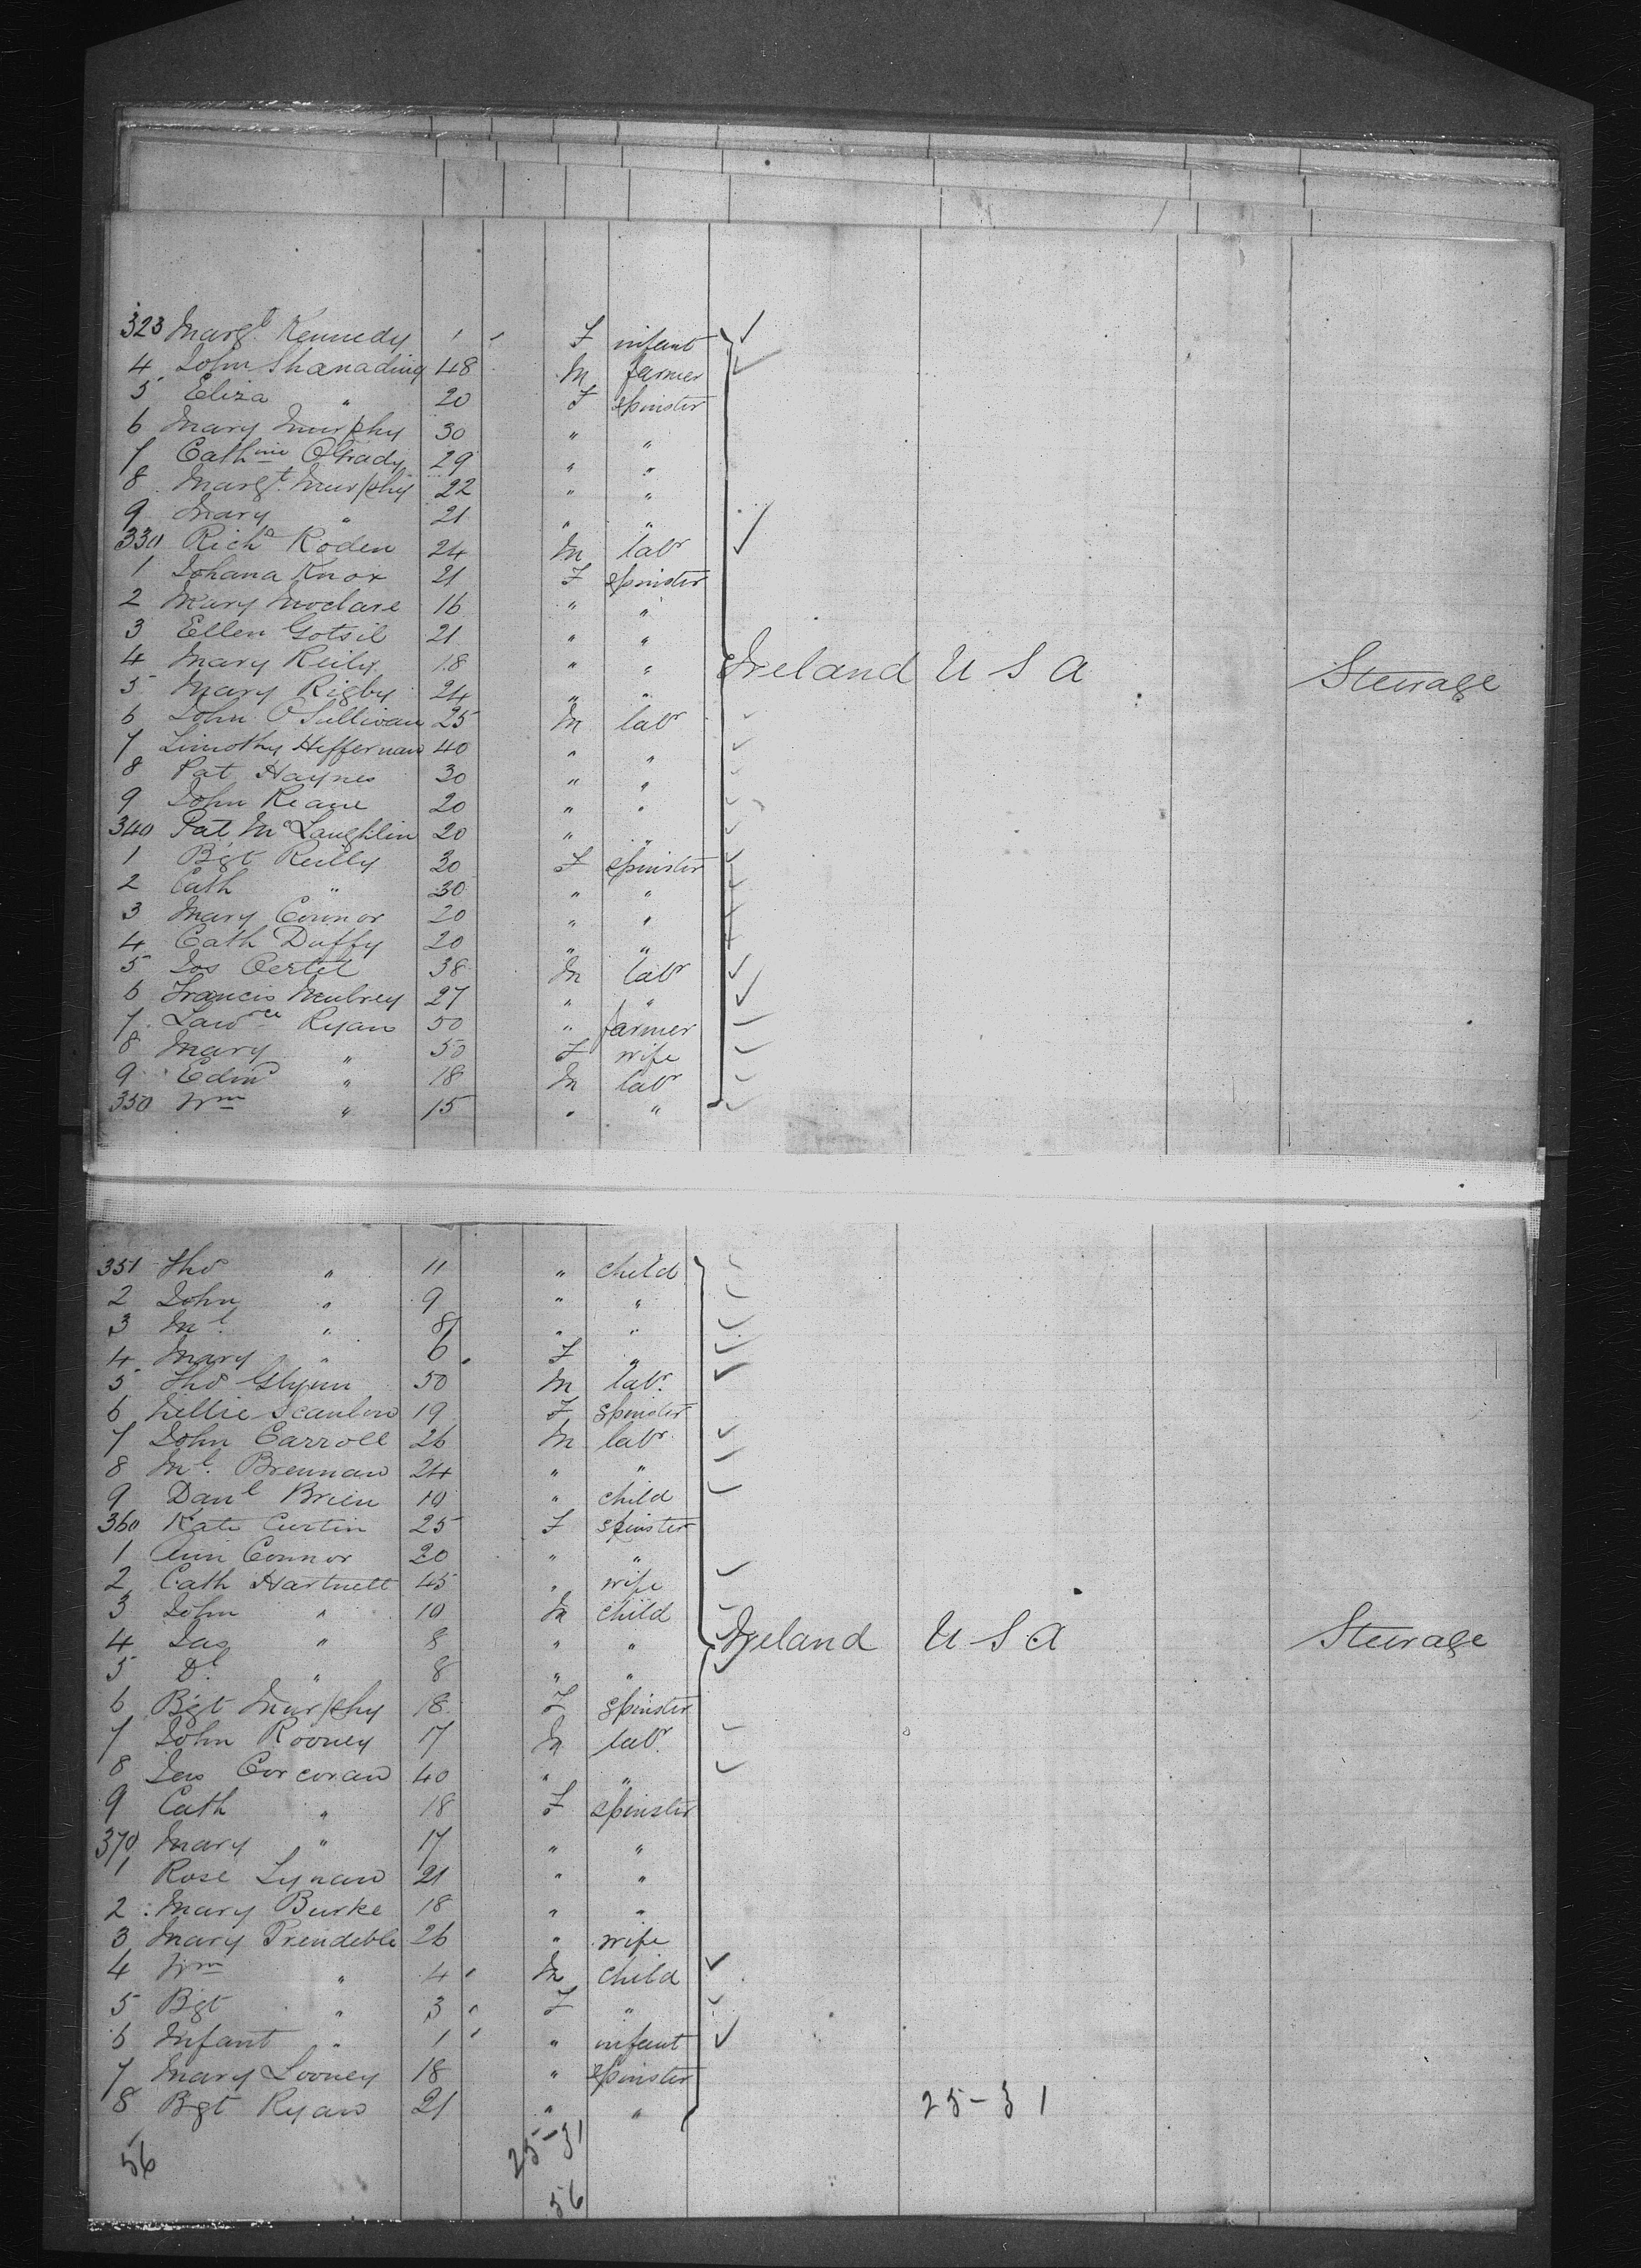 323 Margt. Kennedy 1 ' F infant
4 John Shanading 48 M farmer
5 Eliza " 20 F spinster
6 Mary Murphy 30 " "
7 Cathine O'Grady 29 " "
8 Margt. Murphy 22 " "
9 Mary " 21 " "
330 Richd Roden 24 M labr
1 Johana Knox 21 F spinster
2 Mary Moclare 16 " "
3 Ellen Gotsil 21 " "
4 Mary Reily 18 " " Ireland U S A Steerage
5 Mary Rigby 24 " "
6 John O'Sullivan 25 M labr
7 Timothy Heffernan 40 " "
8 Pat Haynes 30 " "
9 John Keane 20 " "
340 Pat McLaughlin 20 " "
1 Bgt Reilly 30 F spinster
2 Cath " 30 " "
3 Mary Connor 20 " "
4 Cath Duffy 20 " "
5 Jos Oertel 38 M labr
6 Francis 27 " "
7 Lawrce Ryan 50 " farmer
8 Mary " 50 F wife
9 Edmd " 18 M labr
350 Wm " 15 " "
351 Thos " 11 " child
2 John " 9 " "
3 Ml. " 8 " "
4 Mary " 6 F "
5 Thos Glynn 50 M labr.
6 Nellie Scanlon 19 F spinster
7 John Carroll 26 M labr
8 Ml. Brennan 24 " "
9 Danl Brien 10 " child
360 Kate Curtin 25 F spinster
1 Ann Connor 20 " "
2 Cath Hartnett 45 " wife
3 John " 10 M child
4 Jas " 8 " " Ireland U S A Steerage
5 Dl. " 8 " "
6 Bgt Murphy 18 F spinster
7 John Rooney 17 M labr.
8 Jas Corcoran 40 " "
9 Cath " 18 F spinster
370 Mary " 17 " "
1 Rose Lynan 21 " "
2 Mary Burke 18 " "
3 Mary Prendeble 26 " wife
4 Wm " 4 ' M child
5 Bgt " 3 ' F "
6 Infant " 1 ' " infant
7 Mary Looney 18 " spinster
8 Bgt Ryan 21 " " 25-31
56 25-31
56